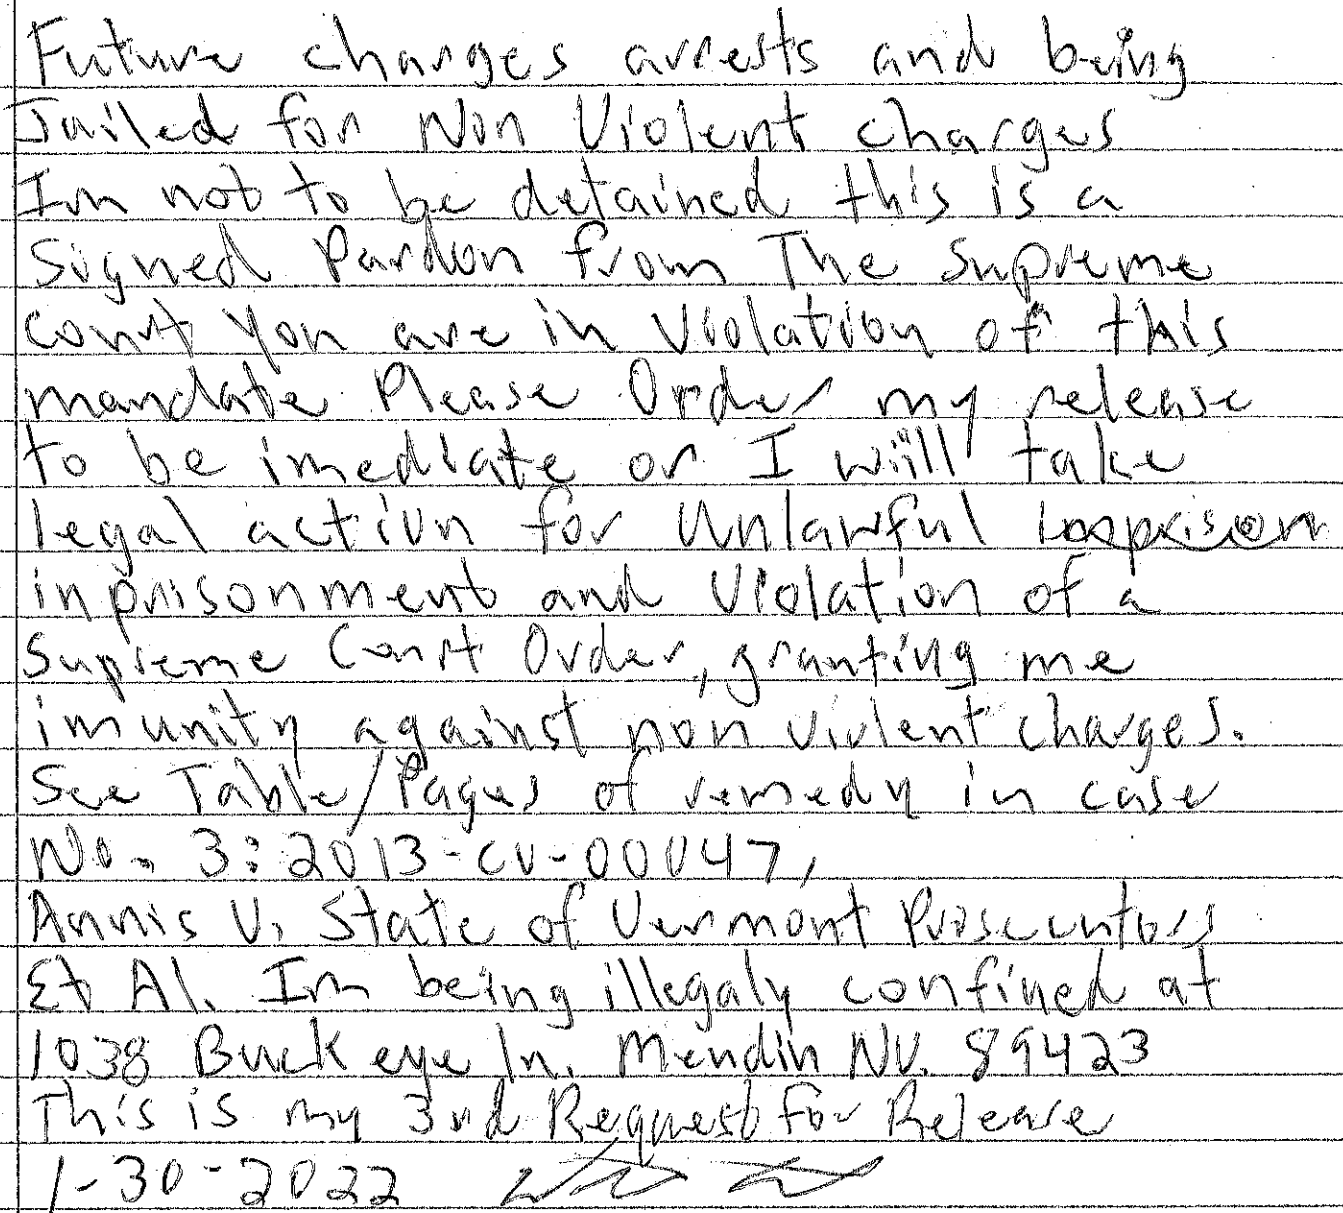 Future charges arrests and being
Jailed for Non Violent charges
Im not to be detained this is a
Signed Pardon from The Supreme
court You are in Violation of this
mandate Please Order my release
to be imediate or I will take
legal action for Unlawful
inprisonment and Violation of a
Supreme Court Order, granting me
imunity against non violent charges.
See Table/Pages of remedy in case
No. 3:2013-cv-00047,
Annis V. State of Vermont Prosecutors
Et Al. Im being illegaly confined at
1038 Buckeye ln. Mendin NV. 89423
This is my 3rd Request for Release
1-30-2022